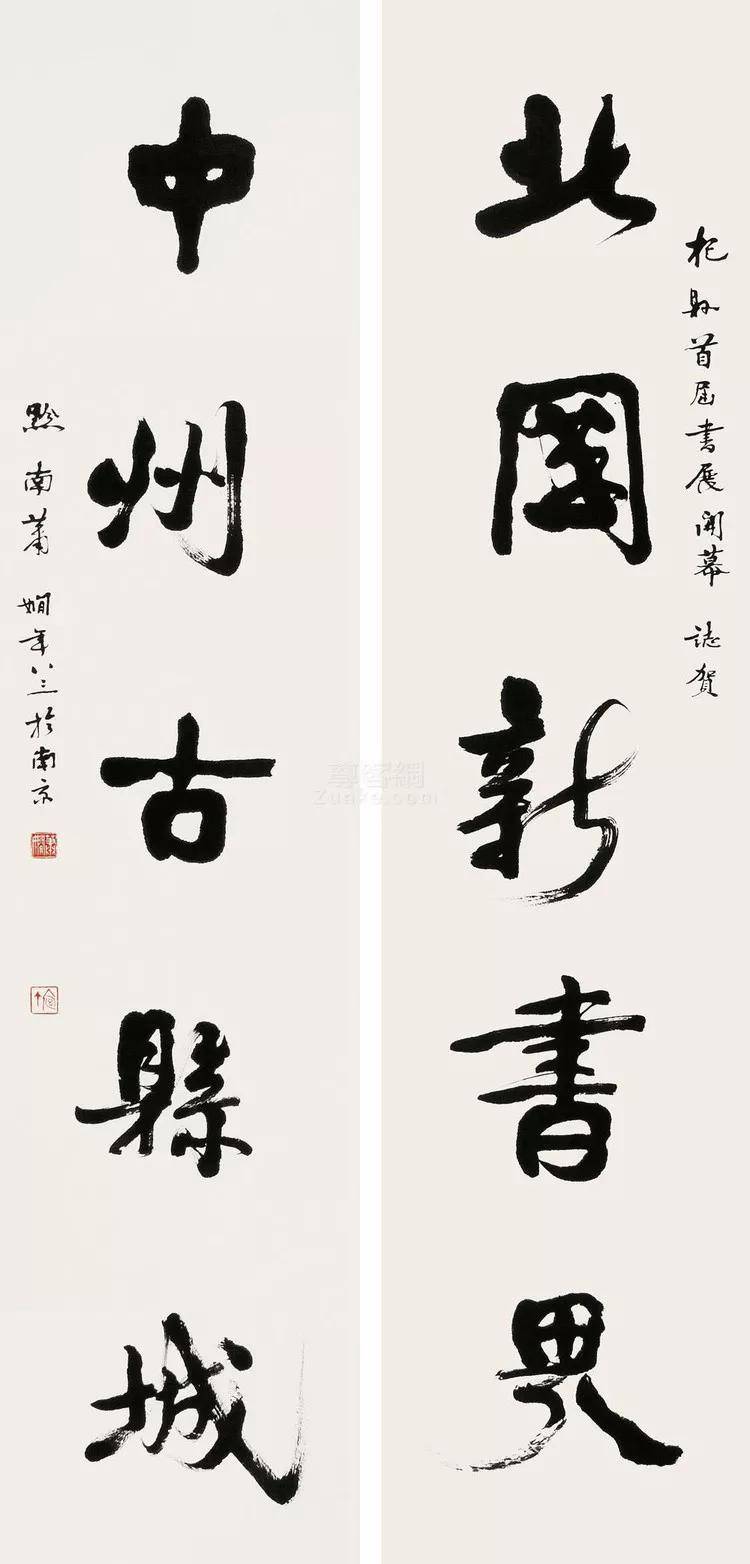 杞縣首屆書展開幕 誌賀
北國新書界
中州古縣城
黔南蕭嫻年八三於南京
尊客網